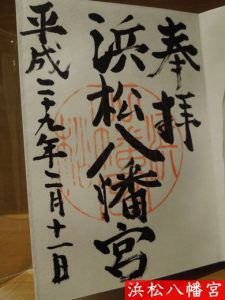 奉拝
浜松八幡宮
平成二十九年二月十一日
浜松八幡宮